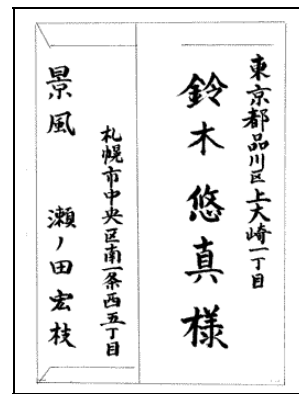 東京都品川区上大崎一丁目
鈴木悠真様
札幌市中央区南一条西五丁目
景風　瀬ノ田宏枝